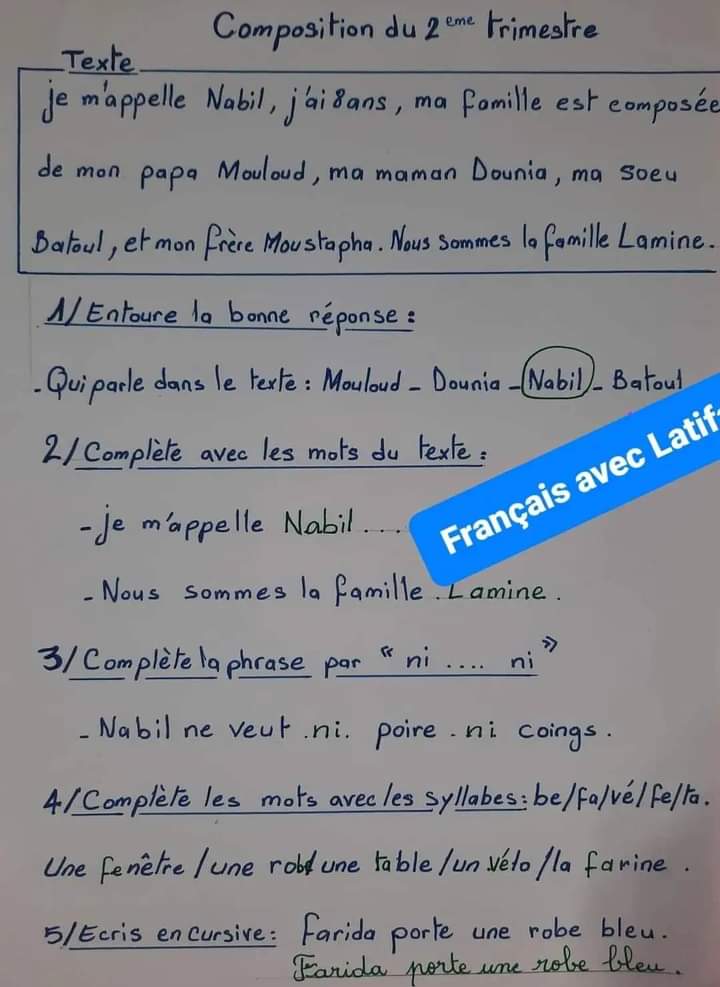 Composition du 2eme trimestre
Texte
je m'appelle Nabil, j'ai 8 ans, ma famille est composée
de mon papa Mouloud, ma maman Dounia, ma soeu
Batoul, et mon frère Moustapha. Nous sommes la famille Lamine.
1/ Entoure la bonne réponse :
- Qui parle dans le texte : Mouloud - Dounia - Nabil - Batoul
2/ Complète avec les mots du texte :
- je m'appelle Nabil ...
Français avec Latif
- Nous sommes la famille . Lamine .
3/ Complète la phrase par " ni .... ni »
- Nabil ne veut .ni. poire . ni coings .
4/ Complète les mots avec les syllabes : be/fa/vé/fe/ta.
Une fenêtre / une robe/ une table / un vélo / la farine .
5/ Ecris en cursive : Farida porte une robe bleu.
Farida porte une robe bleu.